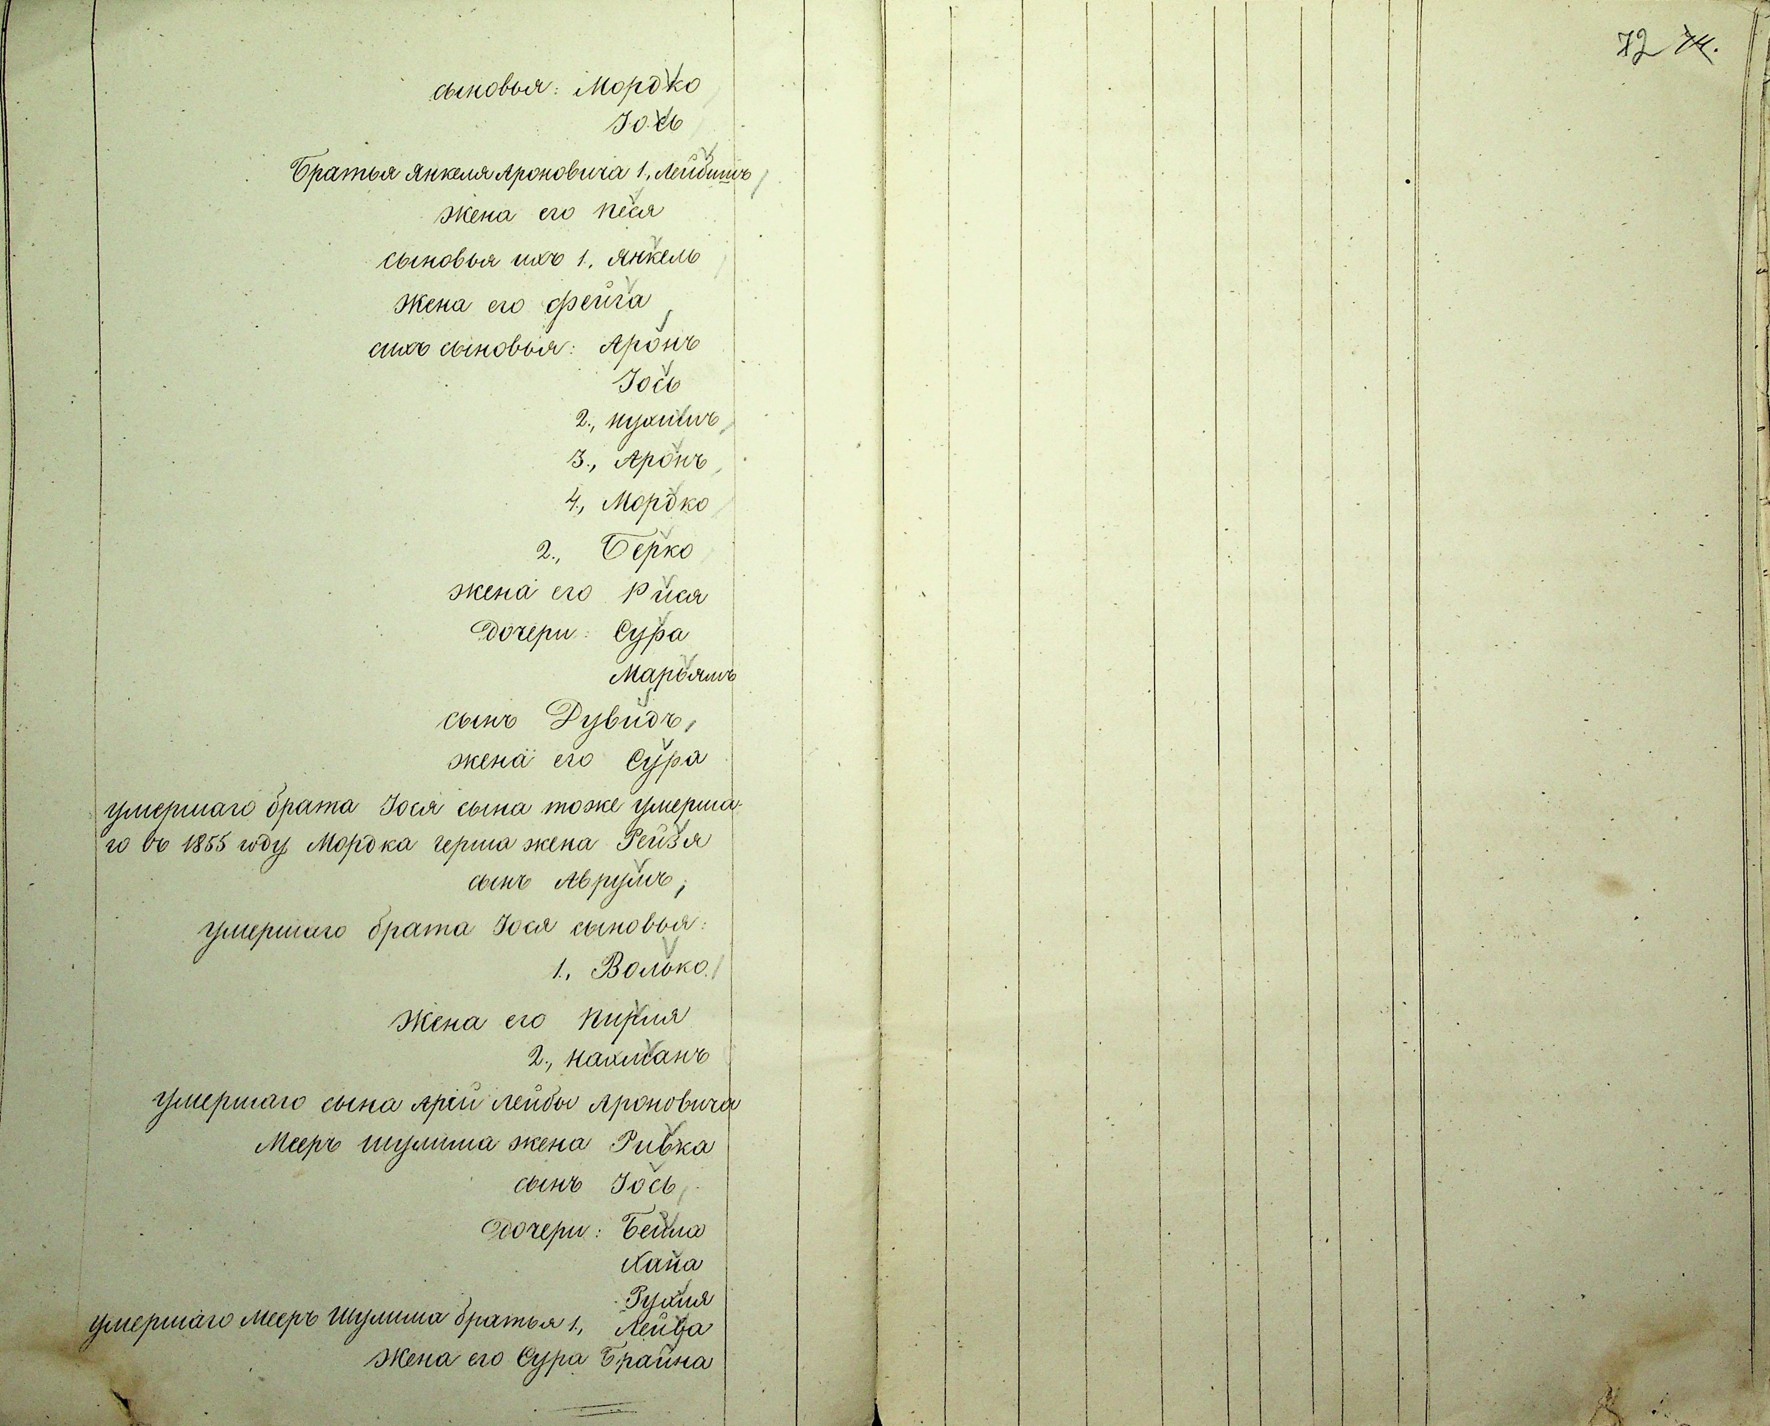 72 74.
сыновья: Мордко
Іось
Братья Янкеля Ароновича 1, Лейбишъ
жена его Песя
сыновья ихъ 1, Янкель
жена его Фейга
сихъ сыновья: Аронъ
Іось
2., Нухимъ
3., Аронъ
4., Мордко
2., Берко
жена его Рися
Дочери: Сура
Марьямъ
сынъ Дувидъ,
жена его Сура
умершаго брата Іося сына тоже умерша-
го въ 1855 году Мордка Герша жена Рейзя
сынъ Аврумъ,
умершаго брата Іося сыновья:
1., Волько
жена его Пирля
2., Нахманъ
умершаго сына Арій Лейбы Ароновича
Мееръ Шулима жена Ривка
сынъ Іось
Дочери: Бейла
Хана
Рухля
умершаго Мееръ Шулима братья 1., Лейба
жена его Сура Брайна